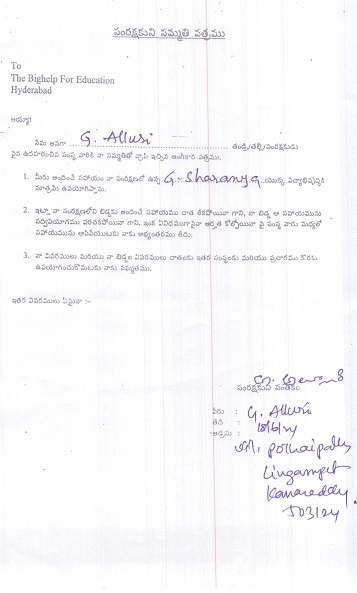 సంరక్షకుని సమ్మతి పత్రము
To
The Bighelp For Education
Hyderabad
అయ్యా!
నేను అనగా G. Allusi తండ్రి/తల్లి/సంరక్షకుడు
పైన ఉదహరించిన సంస్థ వారికి నా సమ్మతితో వ్రాసి ఇచ్చిన అంగీకార పత్రము.
1. మీరు అందించే సహాయం నా సంరక్షణలో ఉన్న G. Sharanya యొక్క విద్యాభివృద్ధికి
మాత్రమే ఉపయోగిస్తాను.
2. ఇట్లా నా సంరక్షణలోని బిడ్డకు అందించే సహాయము దాత లేకపోయినా గాని, నా బిడ్డ ఆ సహాయమును
సద్వినియోగము పరచకపోయినా గాని, ఇంక ఏవిధముగానైనా అర్హత కోల్పోయినా పై సంస్థ వారు మధ్యలో
సహాయమును ఆపివేయుటకు నాకు అభ్యంతరము లేదు.
3. నా వివరములు మరియు నా బిడ్డల వివరములు దాతలకు ఇతర సంస్థలకు మరియు ప్రచారము కొరకు
ఉపయోగించుకొనుటకు నాకు సమ్మతము.
ఇతర వివరములు ఏమైనా :-
సంరక్షకుని సంతకం
పేరు : G. Allusi
తేది :
అడ్రసు : pothaipally
Lingampet
Kamareddy
503124